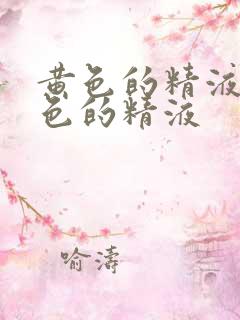 黄色的精液
色的精液
喻濤